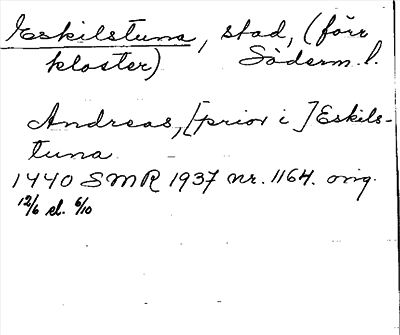 Eskilstuna, stad, (förr
kloster) Söderm. l.
Andreas, [prior i] Eskils-
tuna
1440 SMR 1937 nr. 1164. orig.
12/6 el. 6/10